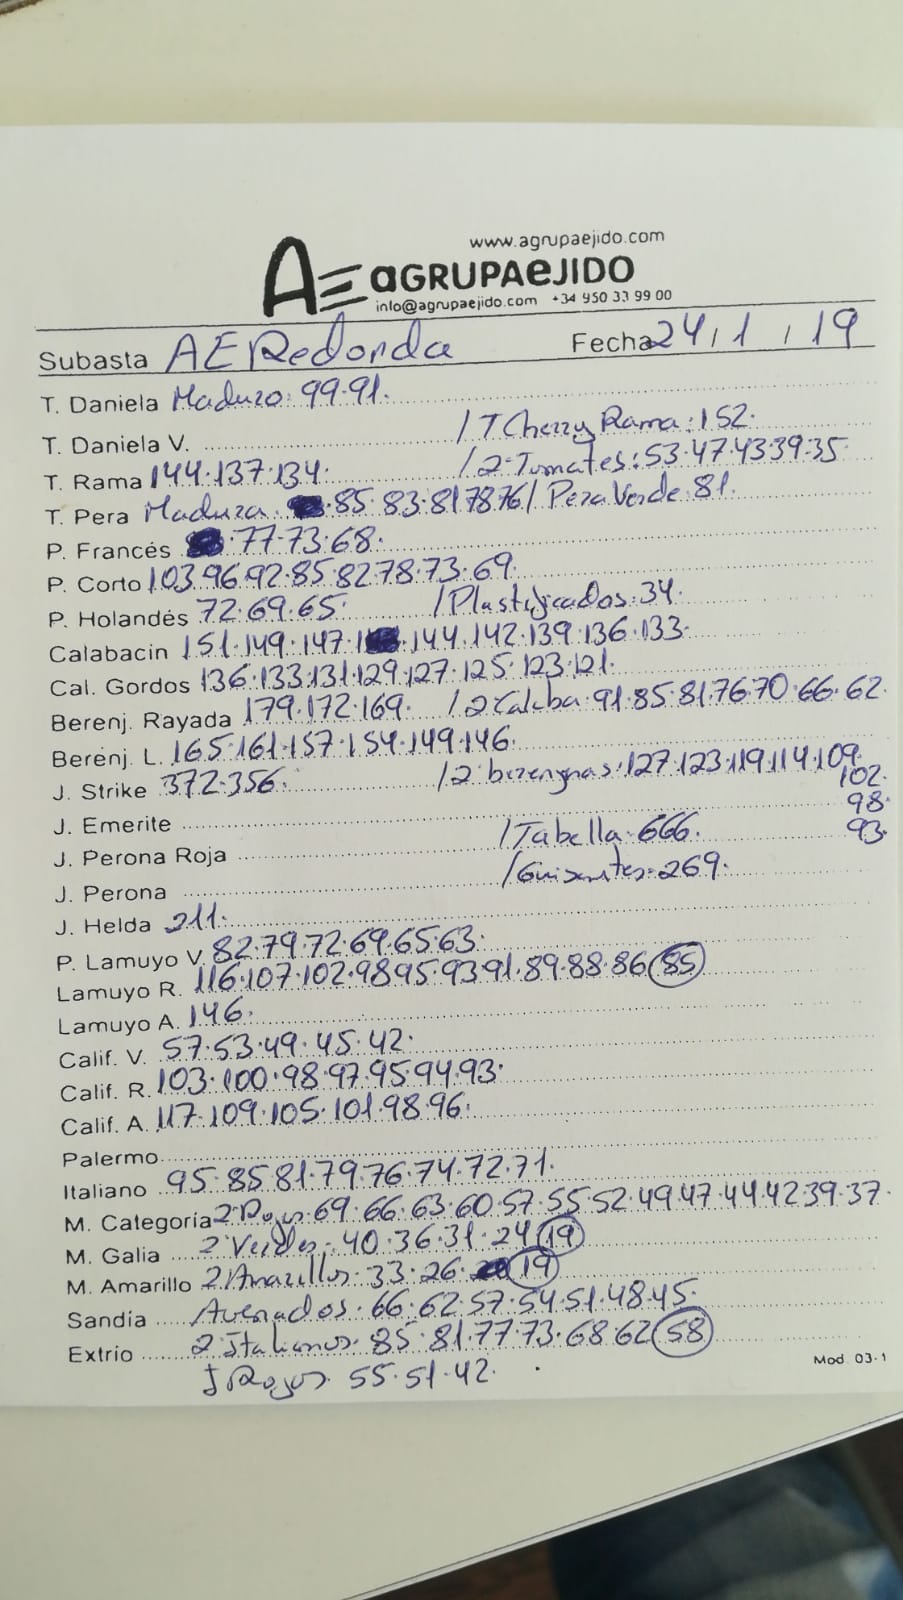 www.agrupaejido.com
AE aGRUPAeJIDO
info@agrupaejido.com +34 950 33 99 00
Subasta AE Redonda Fecha 24/1/19
T. Daniela Maduro: 99·91.
T. Daniela V. / T Cherry Rama: 152.
T. Rama 144·137·134. / 2ª Tomates: 53·47·43·39·35
T. Pera Madura: 85·83·81·78·76 / Pera Verde: 81.
P. Francés 77·73·68.
P. Corto 103·96·92·85·82·78·73·69.
P. Holandés 72·69·65. / Plastificados: 34.
Calabacin 151·149·147·144·142·139·136·133.
Cal. Gordos 136·133·131·129·127·125·123·121.
Berenj. Rayada 179·172·169. / 2ª Calaba: 91·85·81·76·70·66·62.
Berenj. L. 165·161·157·154·149·146.
J. Strike 372·356. / 2ª berengnas: 127·123·119·114·109
102
98
J. Emerite 93
J. Perona Roja / Tabella: 666.
J. Perona / Guisantes: 269.
J. Helda 211.
P. Lamuyo V. 82·79·72·69·65·63.
Lamuyo R. 116·107·102·98·95·93·91·89·88·86 85
Lamuyo A. 146.
Calif. V. 57·53·49·45·42.
Calif. R. 103·100·98·97·95·94·93.
Calif. A. 117·109·105·101·98·96.
Palermo
Italiano 95·85·81·79·76·74·72·71.
M. Categoría 2ª Rojos: 69·66·63·60·57·55·52·49·47·44·42·39·37.
M. Galia 2ª Verdes: 40·36·31·24 19
M. Amarillo 2ª Amarillos: 33·26· 19
Sandía Averiados: 66·62·57·54·51·48·45.
Extrio 2ª Italianos: 85·81·77·73·68·62 58
Rojos: 55·51·42.
Mod. 03-1